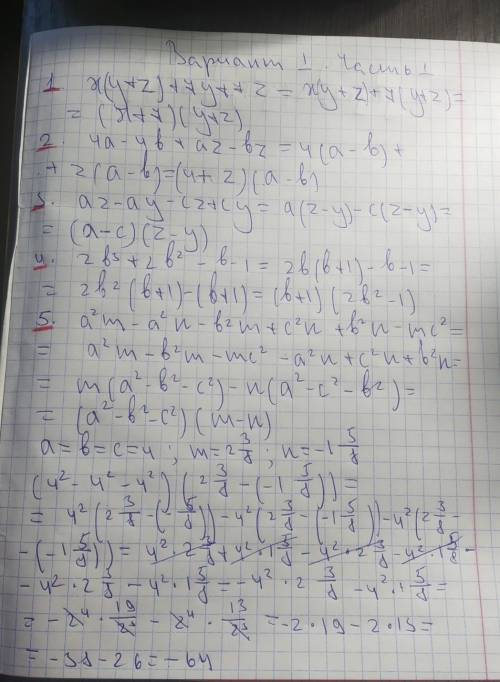 Вариант 1. Часть 1
1. x(y+z)+7y+7z = x(y+z)+7(y+z)=
= (x+7)(y+z)
2. 4a-4b+az-bz=4(a-b)+
+z(a-b)=(4+z)(a-b)
3. az-ay-cz+cy=a(z-y)-c(z-y)=
= (a-c)(z-y)
4. 2b³+2b²-b-1=2b(b+1)-b-1=
= 2b²(b+1)-(b+1)=(b+1)(2b²-1)
5. a²m-a²n-b²m+c²n+b²n-mc²=
= a²m-b²m-mc²-a²n+c²n+b²n=
= m(a²-b²-c²)-n(a²-c²-b²)=
= (a²-b²-c²)(m-n)
a=b=c=4; m=2 3/8; n=-1 5/8
(4²-4²-4²)(2 3/8-(-1 5/8))=
= 4²(2 3/8-(-5/8))-4²(2 3/8-(-1 5/8))-4²(2 3/8-
-(-1 5/8))=4²·2 3/8+4²·1 5/8-4²·2 3/8-4²·1 5/8-
-4²·2 3/8-4²·1 5/8=-4²·2 3/8-4²·1 5/8=
= -2⁴·19/2³-2⁴·13/2³=-2·19-2·13=
= -38-26=-64